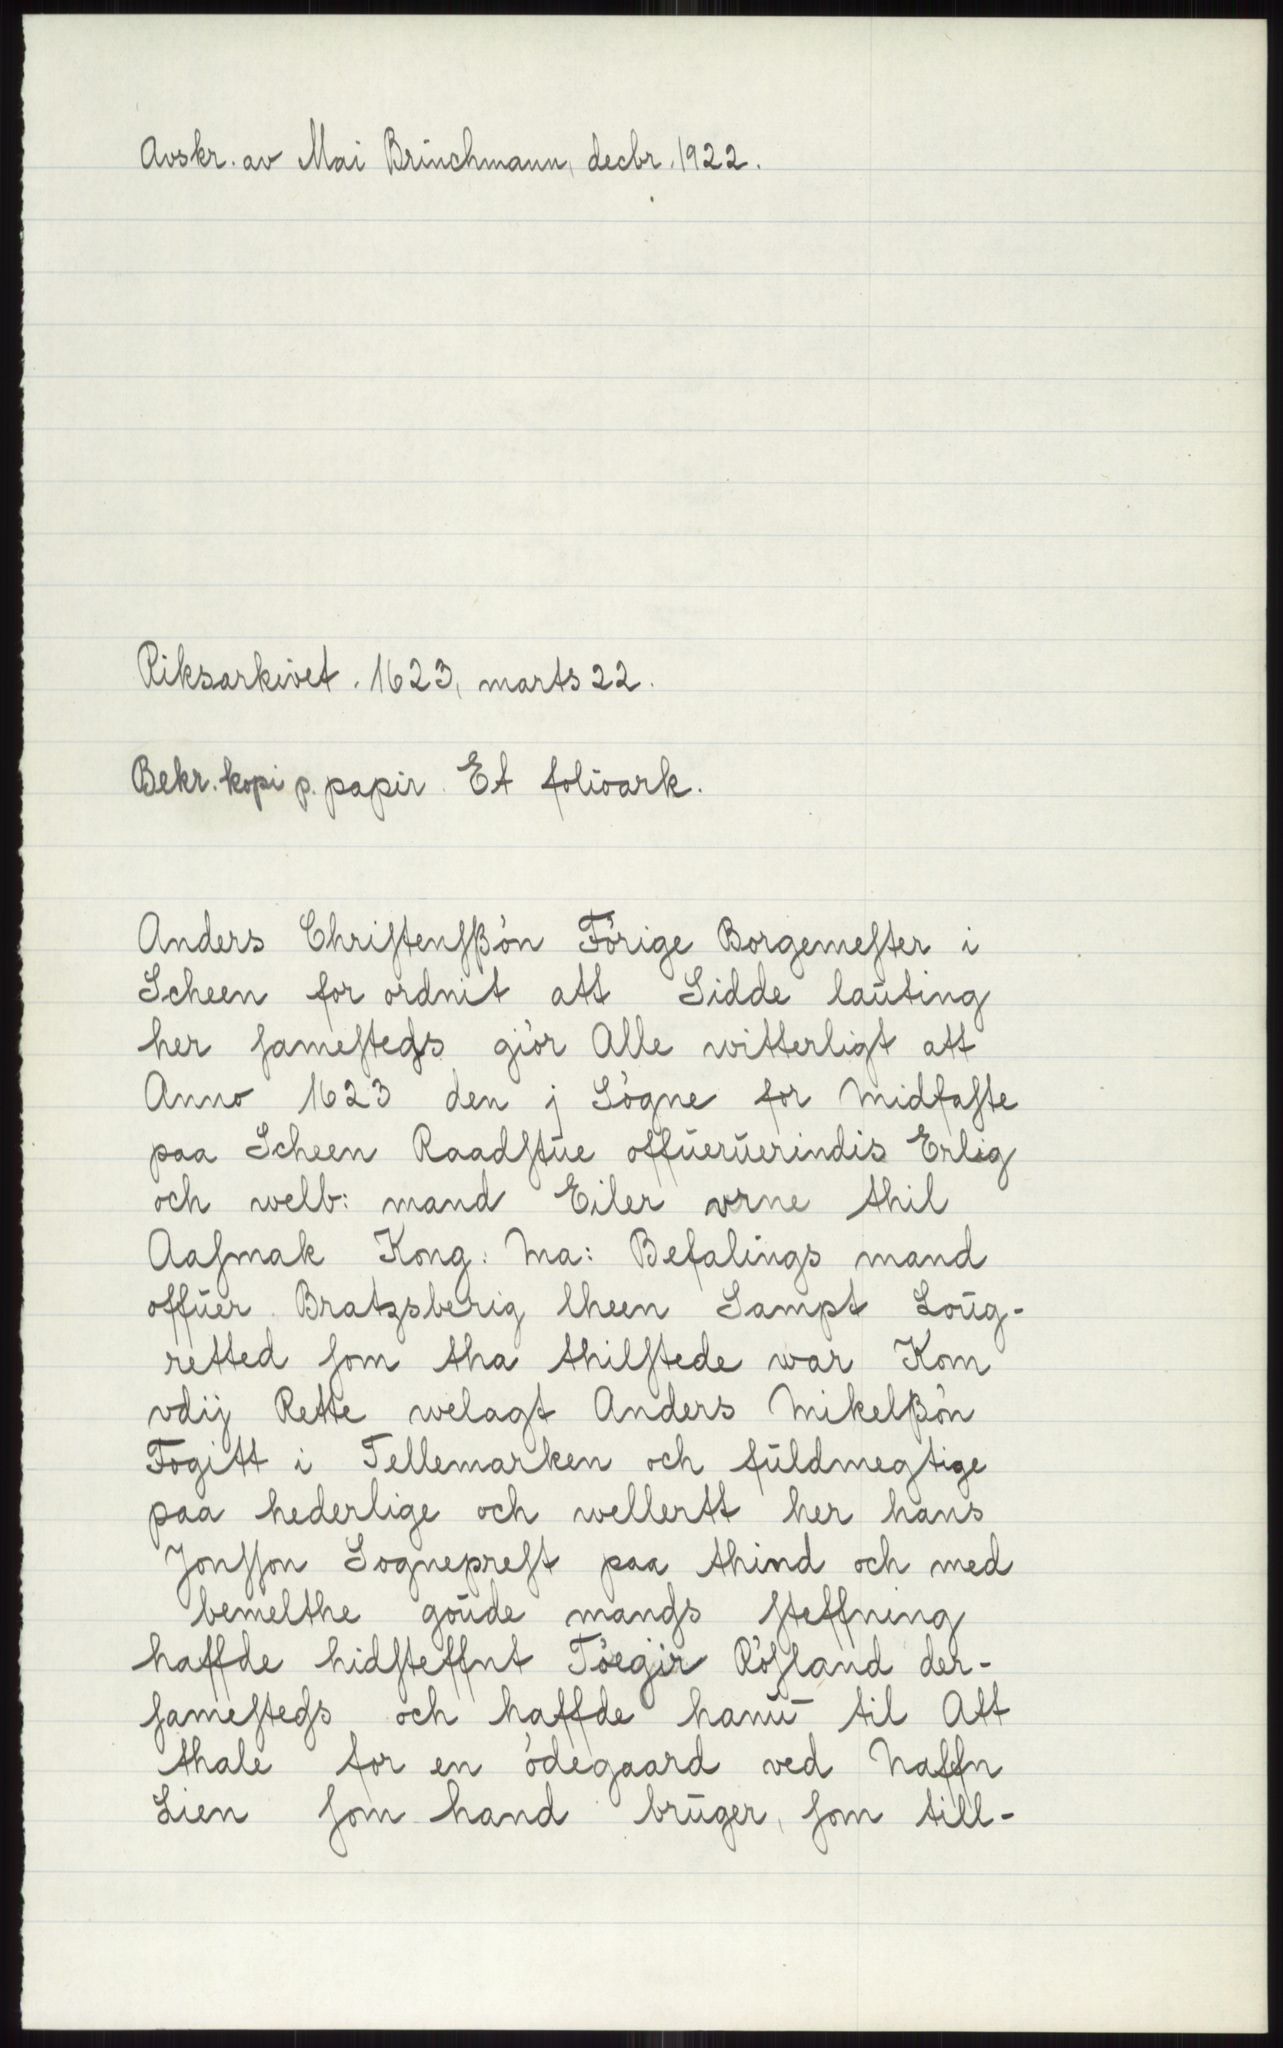 Avskr. av Mai Brinchmann, decbr. 1922.
Riksarkivet. 1623, marts 22.
Bekr. kopi p. papir. Et folioark.
Anders Chriſtenſßön Förige Borgemeſter i
Scheen for ordnit att Sidde laŭting
her ſameſteds giör Alle witterligt att
Anno 1623 den j Sögne for Midfaſte
paa Scheen Raadſtŭe offŭerŭerindis Erlig
och welb: mand Eiler vrne thil
Aaſmak Kong: Ma: Befalings mand
offŭer Bratzsberig lheen Sampt Loŭg-
retted ſom tha thilſtede war Kom
vdij Rette welagt Anders Mikelßön
Fogitt i Tellemarken och fŭldmegtige
paa hederlige och wellertt her hans
Jonſſon Sognepreſt paa thind och med
bemelthe goŭde mands ſteffning
haffde hidſteffnt Töegir Röſland der-
ſameſteds och haffde hanŭ til Att
thale for en ödegaard ved Naffn
Lien ſom hand brŭger, ſom till-